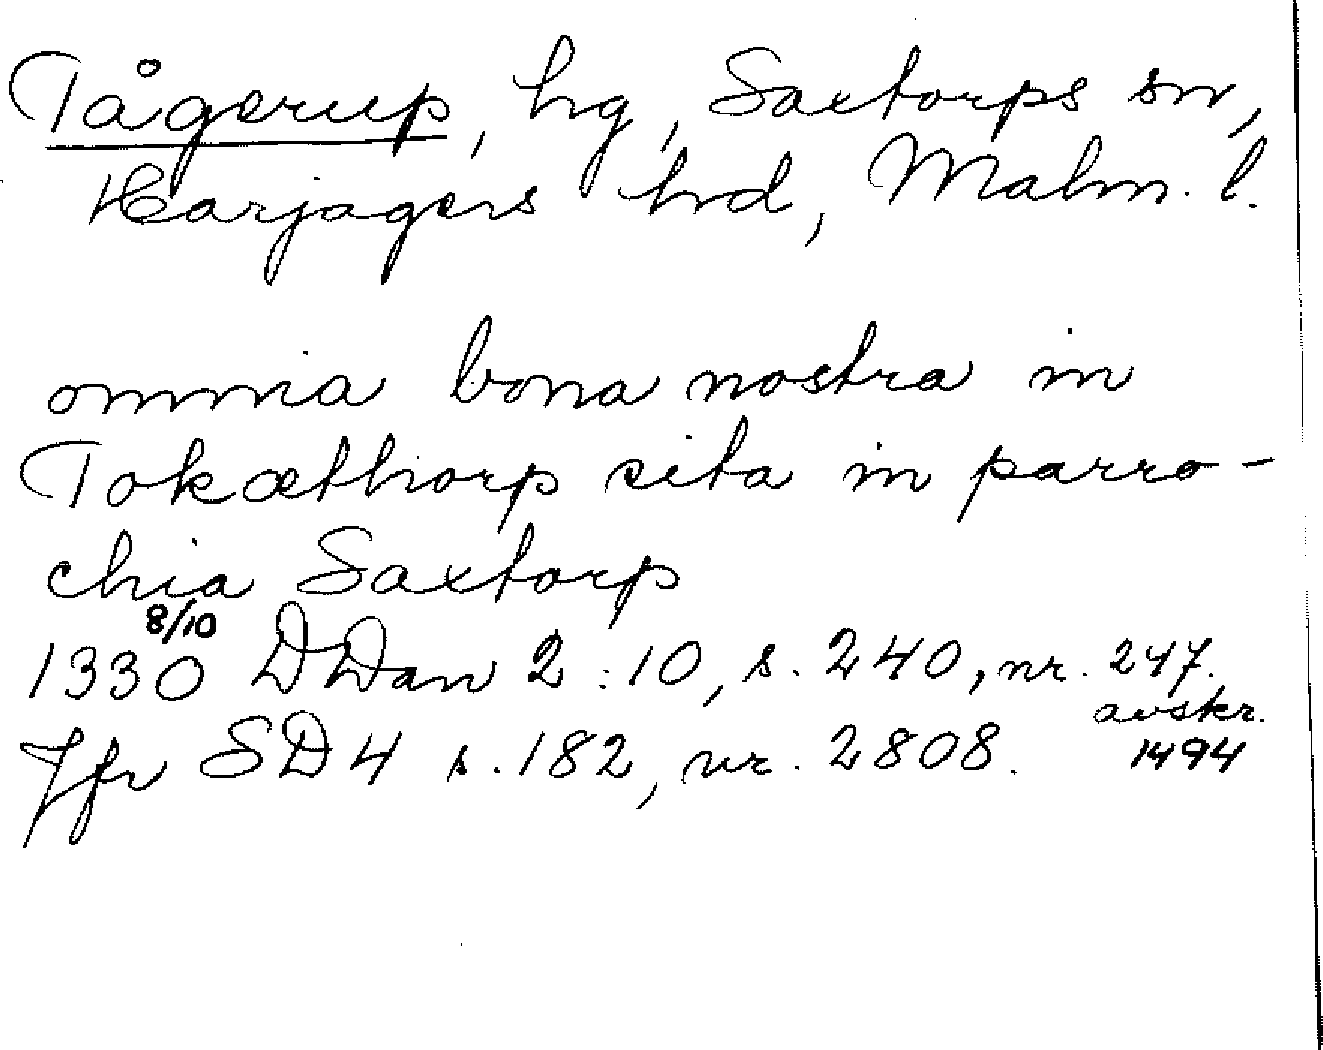 Tågerup, hg, Saxtorps sn,
Harjagers hd, Malm. l.
omnia bona nostra in
Tokæthorp sita in parro-
chia Saxtorp
8/10
1330 DDan 2:10, s. 240, nr. 247.
avskr.
Jfr SD4 s. 182, nr. 2808. 1494